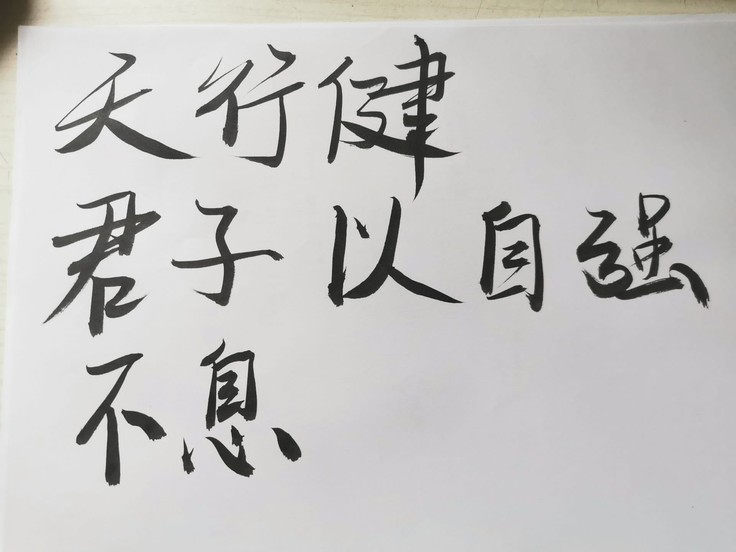 天行健
君子以自强
不息